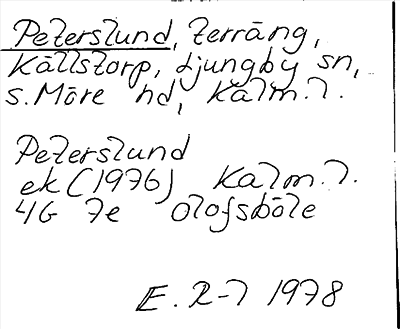 Peterslund, terräng,
Källstorp, Ljungby sn,
S. Möre hd, Kalm. l.
Peterslund
ek (1976) Kalm. l.
4G 7e Olofsböle
E. R-l 1978